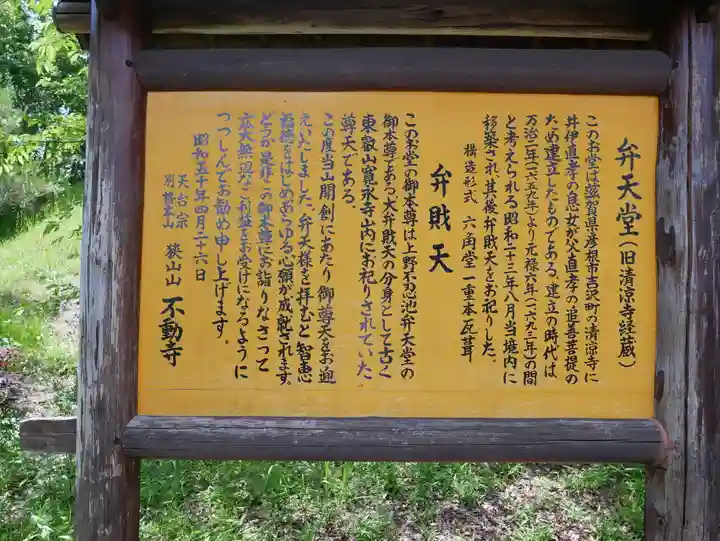 弁天堂(旧清涼寺経蔵)
このお堂は滋賀県彦根市古沢町の清涼寺に
井伊直孝の息女が父直孝の追善菩提の
ため建立したものである。建立の時代は
万治二年(一六五九年)より元禄六年(一六九二年)の間
と考えられる昭和二十三年八月当境内に
移築され、其後弁財天をお祀りした。
構造形式 六角堂一重本瓦葺
弁財天
このお堂の御本尊は上野不忍池弁天堂の
御本尊である大弁財天の分身として古く
東叡山寛永寺山内にお祀りされていた
尊天である。
この度当山開創にあたり御尊天をお迎
えいたしました。弁天様を拝むと智恵
福徳をはじめあらゆる心願が成就されます。
どうか是非この御本尊にお詣りなさって
広大無辺なご利益をお受けになるように
つつしんでお勧め申し上げます。
昭和五十年四月二十六日
天台宗
別格本山
狭山山 不動寺